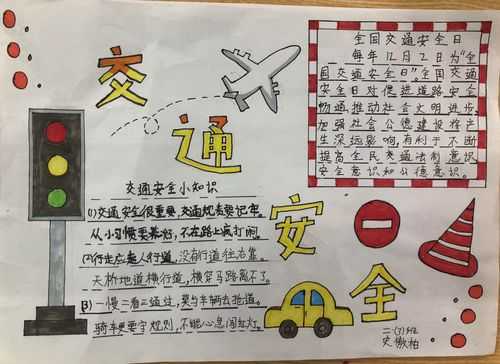 交通安全
全国交通安全日
每年12月2日为“全
国交通安全日”全国交通
安全日对促进道路安全
畅通推动社会文明进步
加强社会公德建设将产
生深远影响,有利于不断
提高全民交通法制意识
安全意识和公德意识。
交通安全小知识
(1)交通安全很重要,交通规则要记牢。
从小习惯要养好,不在路上打闹
(2)行走应走人行道,没有行道往右靠。
天桥地道横行道,横穿马路离不了。
(3)一慢二看三通过,莫与车辆去抢道。
骑车更要守规则,不能心急闯红灯。
二(7)
史